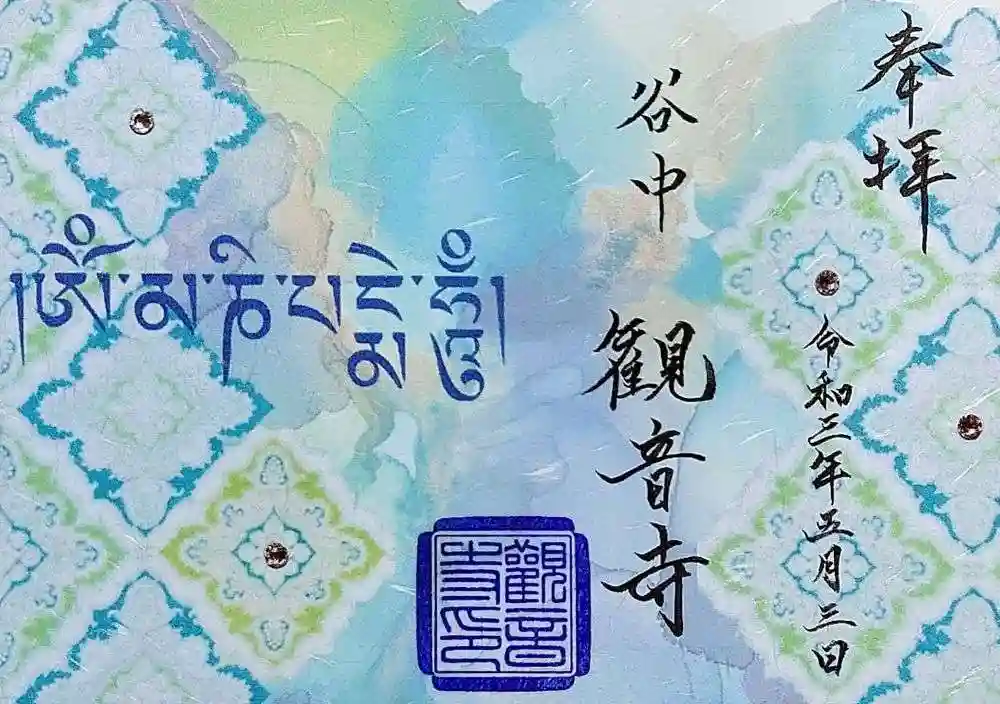 奉拝
令和三年五月三日
谷中 觀音寺
།ཨོཾ་མ་ཎི་པདྨེ་ཧཱུྃ།
觀音
寺印